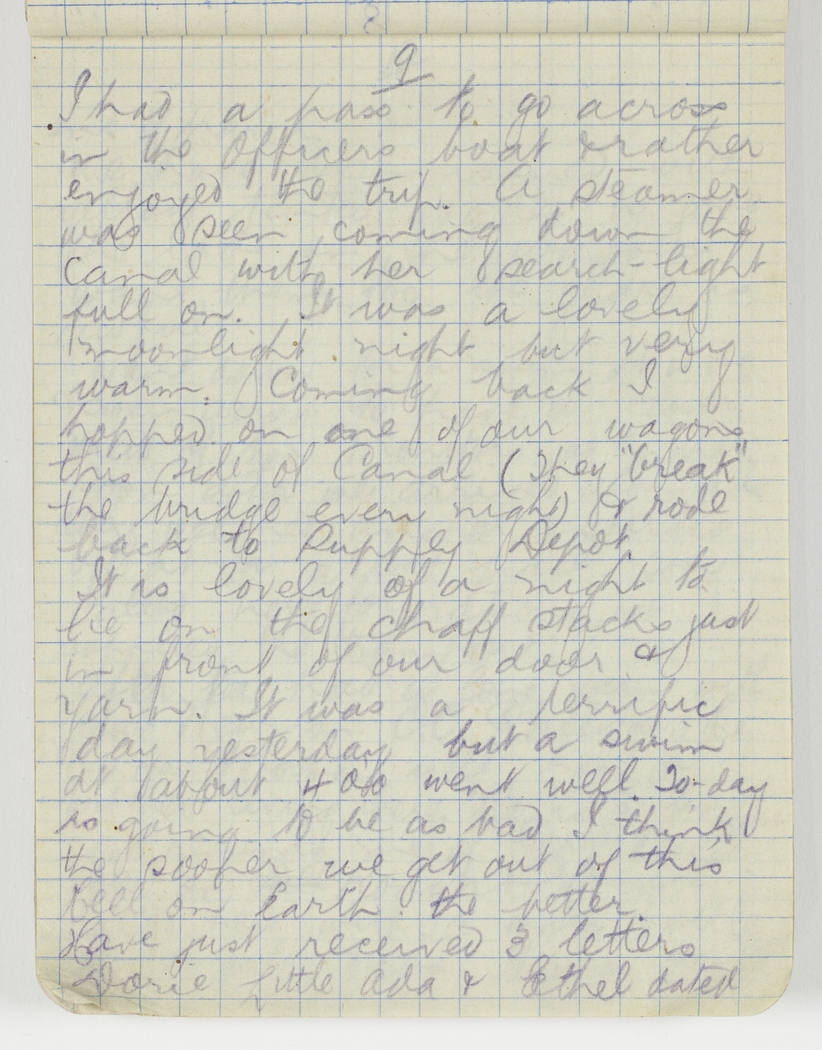 9
I had a pass to go across
in the Officers boat & rather
enjoyed the trip. A steamer
was seen coming down the
Canal with her search-light
full on. It was a lovely
moonlight night but very
warm. Coming back I
hopped on one of our wagons
this side of Canal (They "break"
the bridge every night) & rode
back to Supply Depot.
It is lovely of a night to
lie on the chaff stacks just
in front of our door &
yarn. It was a terrific
day yesterday but a swim
at about 4 o/o went well. To-day
is going to be as bad I think
the sooner we get out of this
hell on Earth the better.
Have just received 3 letters
Dorie Little Ada & Ethel dated